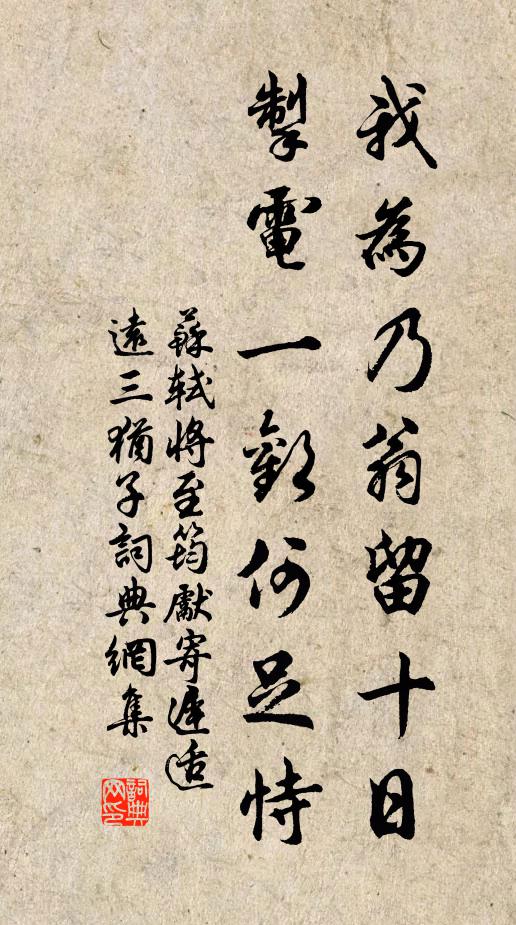 我為乃翁留十日
掣電一歡何足恃
蘇軾將至筠獻寄遲适
遠三猶子詞典網集
詞典网印